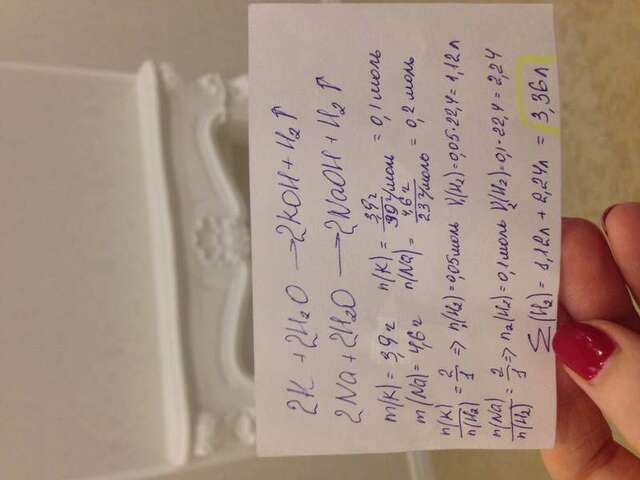 2K + 2H₂O → 2KOH + H₂↑
2Na + 2H₂O → 2NaOH + H₂↑
m(K) = 3,9г n(K) = 3,9г / 39г/моль = 0,1 моль
m(Na) = 4,6г n(Na) = 4,6г / 23г/моль = 0,2 моль
n(K) / n(H₂) = 2/1 => n₁(H₂) = 0,05моль V₁(H₂) = 0,05·22,4 = 1,12л
n(Na) / n(H₂) = 2/1 => n₂(H₂) = 0,1моль V₂(H₂) = 0,1·22,4 = 2,24
Σ(H₂) = 1,12л + 2,24л = 3,36л